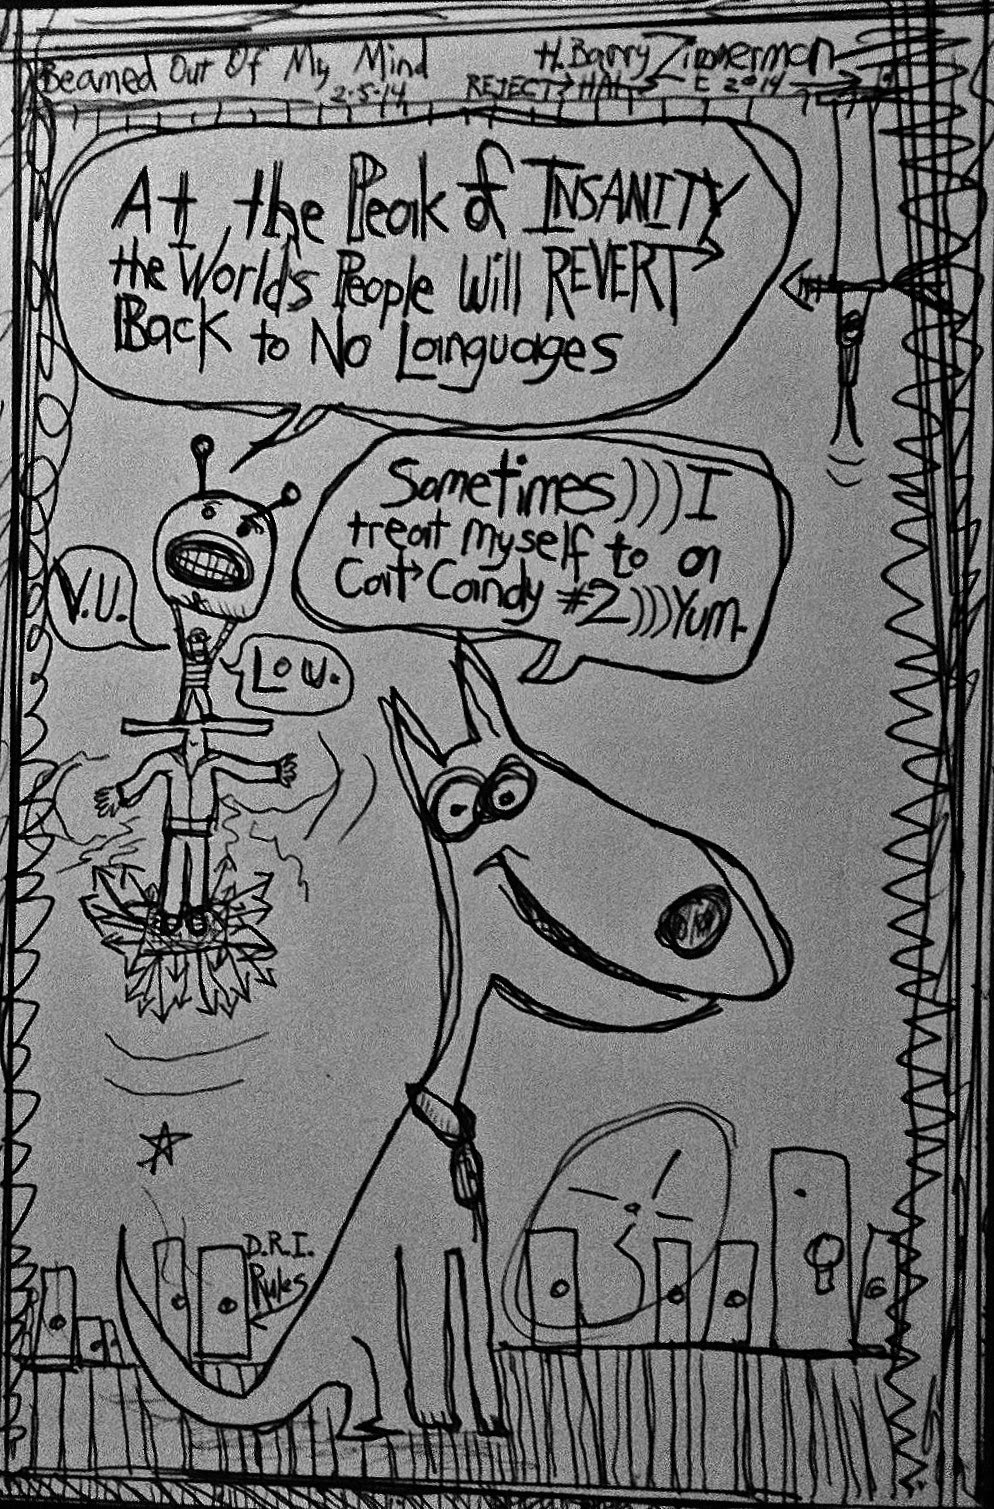 Beamed Out Of My Mind
2-5-14
H. Barry Zimmerman
REJECT→HAL→E 2014
At the Peak of INSANITY
the World's People Will REVERT
Back to No Languages
Sometimes)))I
treat myself to a
Cat→Candy #2)))Yum.
V.U.
Low.
D.R.I.
Rules